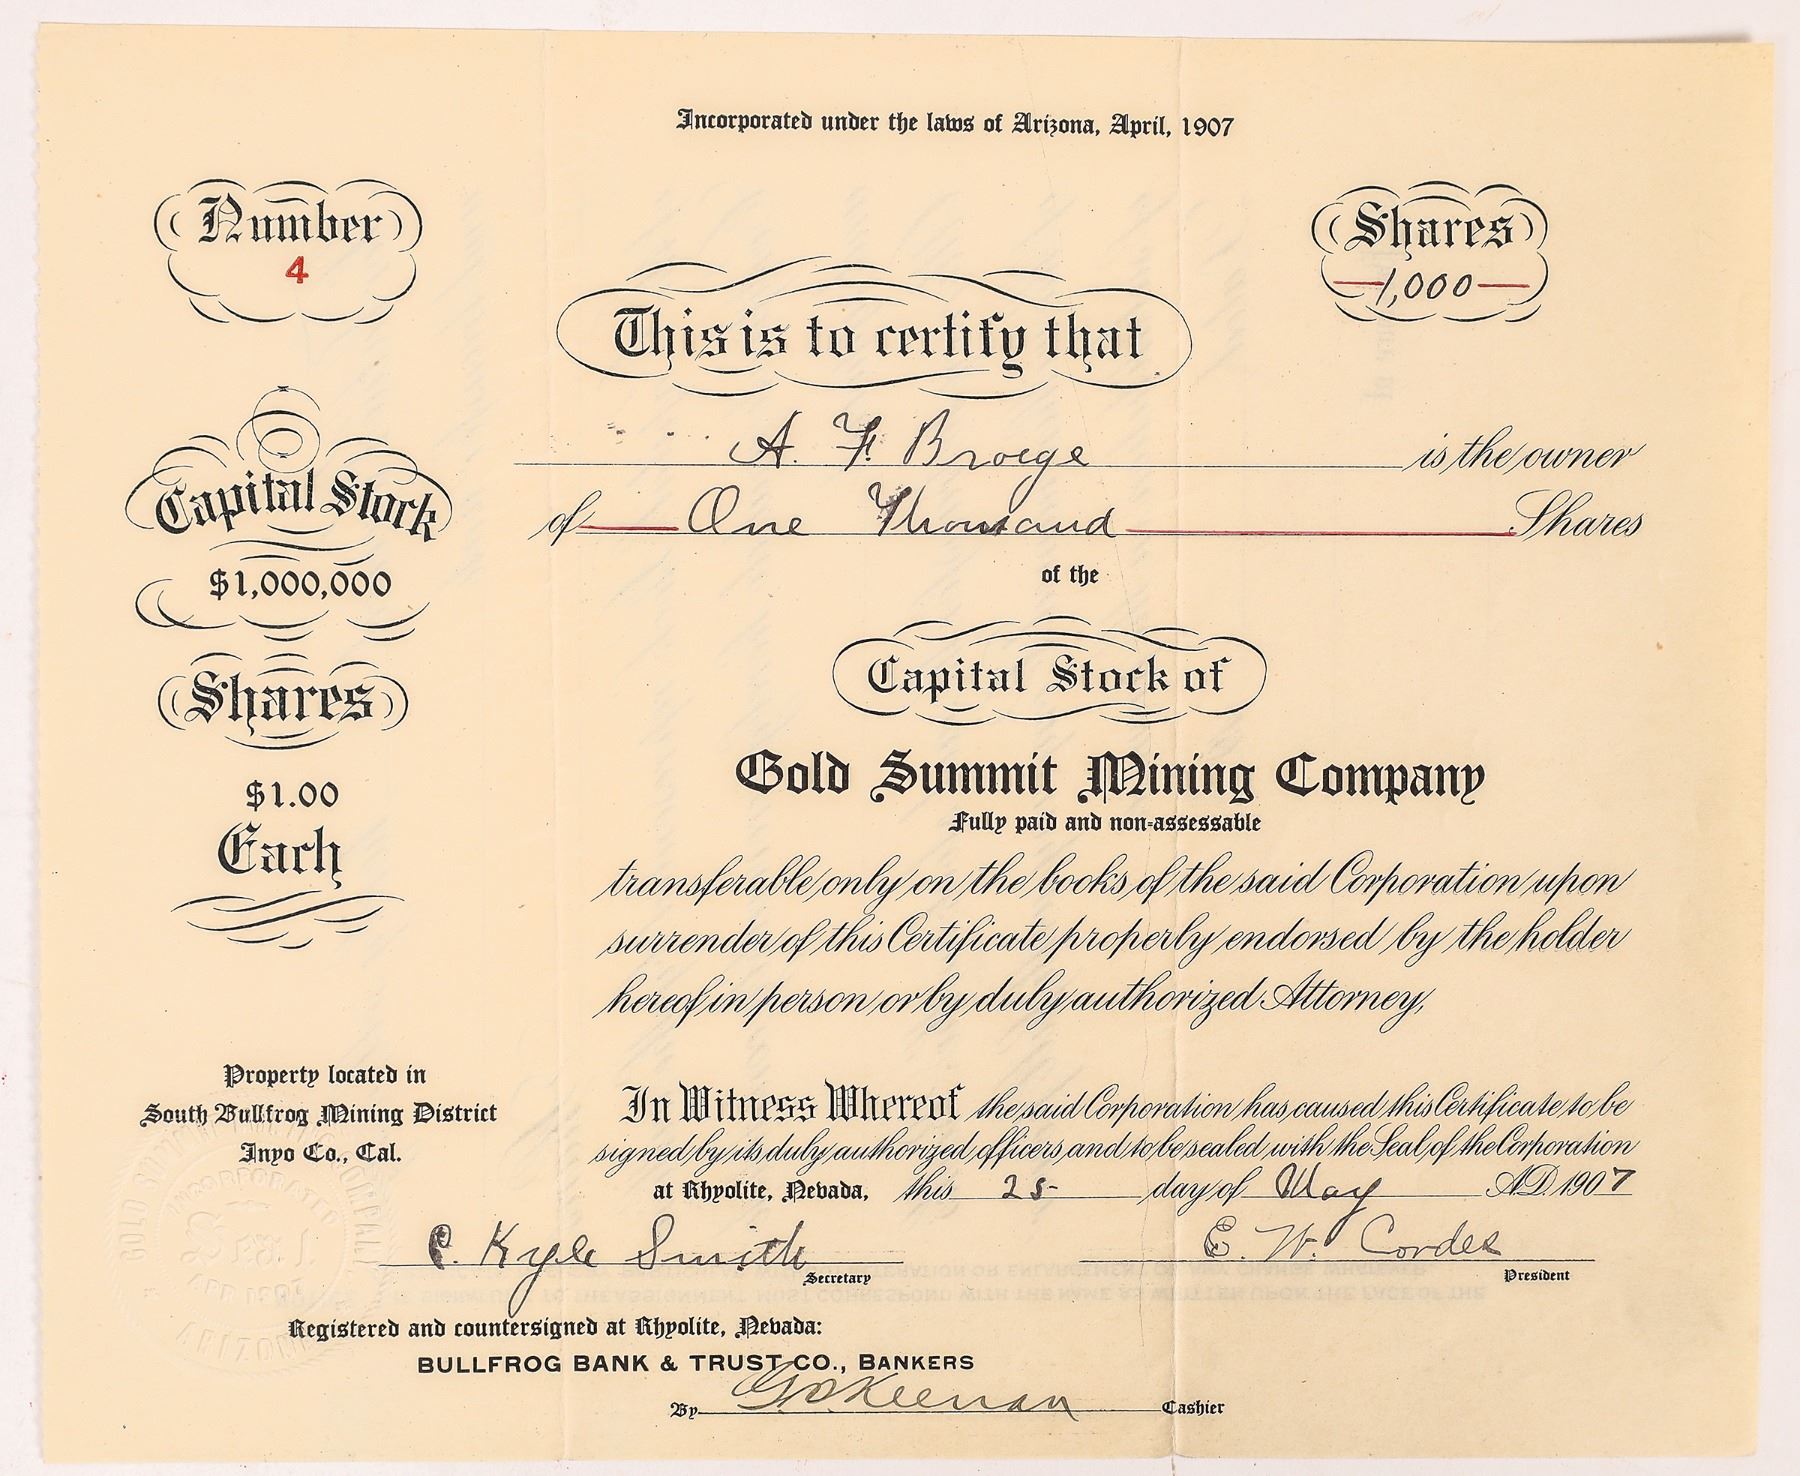 Incorporated under the laws of Arizona, April, 1907
Number
4
Shares
1,000
This is to certify that
A. F. Broege is the owner
of One Thousand Shares
of the
Capital Stock
$1,000,000
Shares
$1.00
Each
Capital Stock of
Gold Summit Mining Company
Fully paid and non-assessable
transferable only on the books of the said Corporation upon
surrender of this Certificate properly endorsed by the holder
hereof in person or by duly authorized Attorney,
Property located in
South Bullfrog Mining District
Inyo Co., Cal.
In Witness Whereof the said Corporation has caused this Certificate to be
signed by its duly authorized officers and to be sealed with the Seal of the Corporation
at Rhyolite, Nevada, this 25 day of May A.D. 1907
C. Kyle Smith
Secretary
E. W. Cordes
President
GOLD SUMMIT MINING COMPANY
INCORPORATED
APR 1907
ARIZONA
Registered and countersigned at Rhyolite, Nevada:
BULLFROG BANK & TRUST CO., BANKERS
By Keenan Cashier